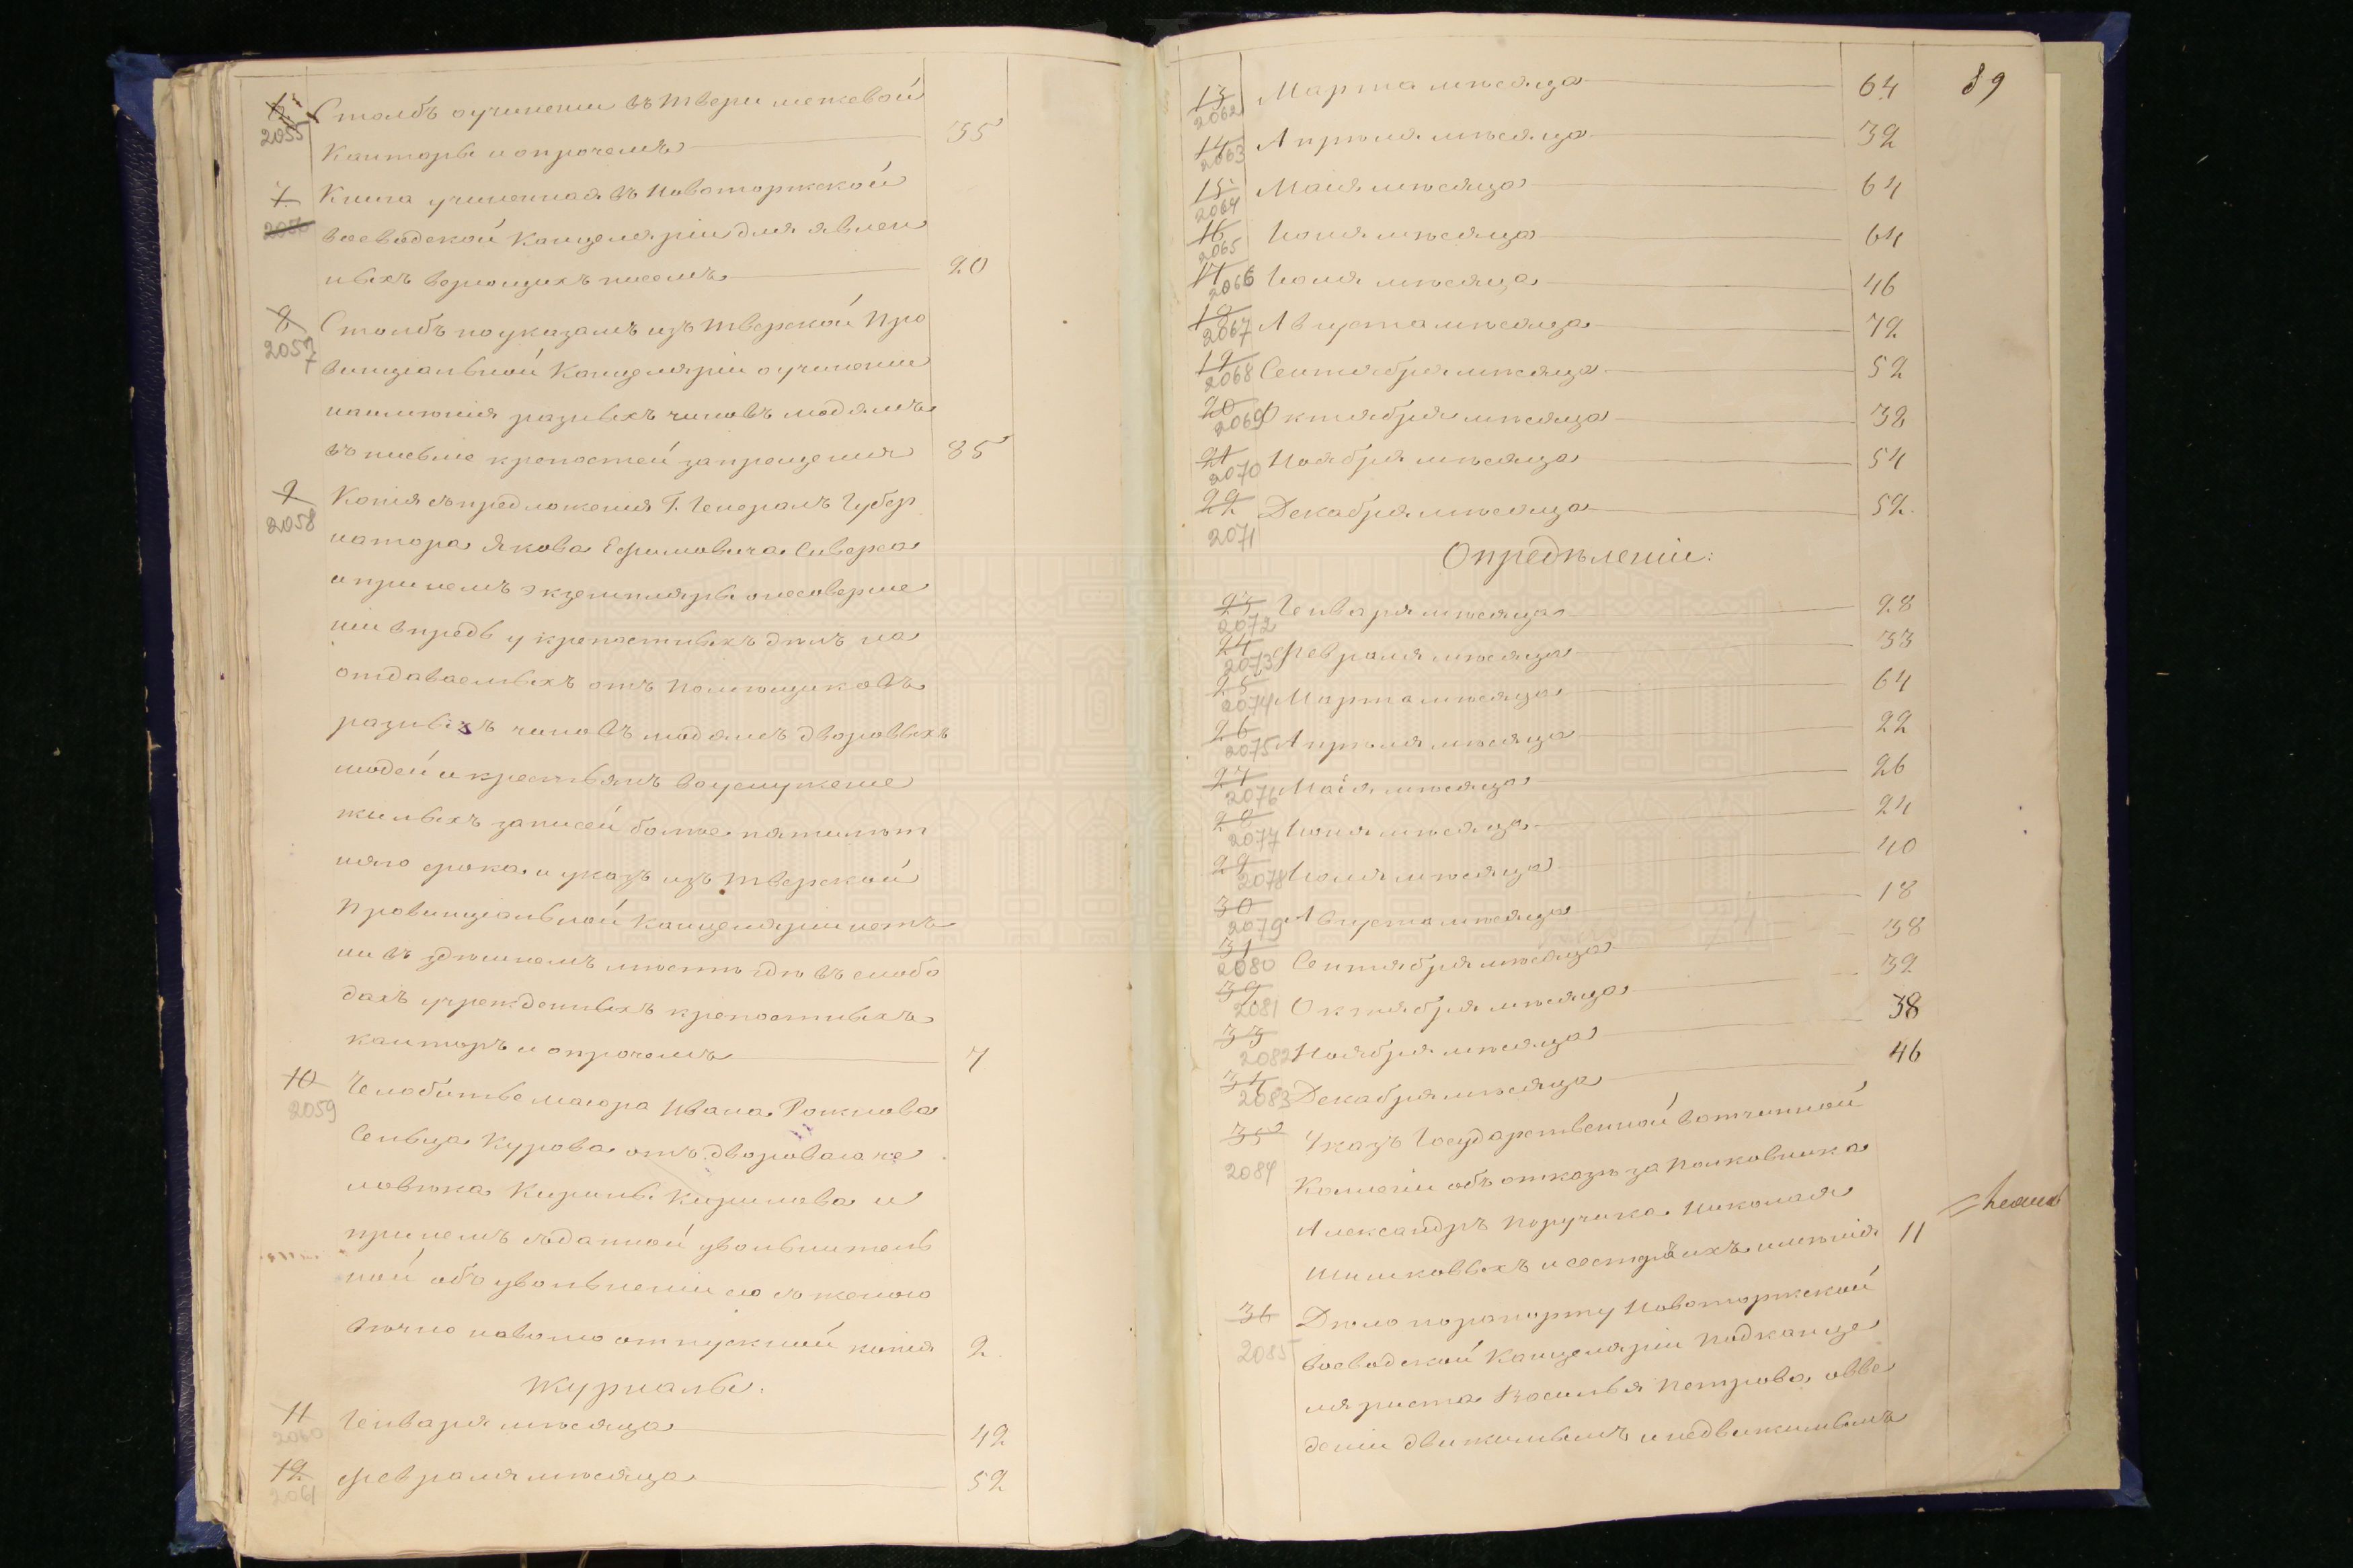 6
2055
Столбъ о учинении въ Твери межевой
Канторы и опрочемъ 55
7
2056
Книга учиненная въ Новоторжской
воеводской Канцелярiи для явлен
ныхъ верющихъ писемъ 20
8
2057
Столбъ по указамъ изъ Тверской Про
винцiальной Канцелярiи о учинении
на имѣния разныхъ чиновъ людямъ
въ письме крепостей запрещения 85
9
2058
Копия съ предложения Г. Генералъ Губер
натора Якова Ефимовича Сиверса
и при немъ экземпляры о несоверше
нии впредь у крепостныхъ дѣлъ на
отдаваемыхъ отъ Помѣщиковъ
разныхъ чиновъ людямъ дворовыхъ
людей и крестьянъ во услужение
жилыхъ записей более пятилѣт
няго срока и указъ изъ Тверской
Провинцiальной Канцелярии нетъ
ли въ здѣшнемъ мѣсте где въ слобо
дахъ учрежденныхъ крепостныхъ
канторъ и опрочемъ 7
10
2059
Челобитье маiора Ивана Рожнова
Сельца Курова отъ двороваго че
ловѣка Кирилы Кирилова и
при немъ съ данной увольнитель
ной объ увольнении его съ женою
вѣчно на волю отпускной копия 2.
Журналы:
11
2060
Генваря мѣсяца 42
12
2061
Февраля мѣсяца 52
89
13
2062
Марта мѣсяца 64
14
2063
Апрѣля мѣсяца 32
15
2064
Маия мѣсяца 64
16
2065
Июня мѣсяца 64
17
2066
Июля мѣсяца 46
18
2067
Августа мѣсяца 72
19
2068
Сентября мѣсяца 52
20
2069
Октября мѣсяца 38
21
2070
Ноября мѣсяца 54
22
2071
Декабря мѣсяца 52.
Опредѣленiи:
23
2072
Генваря мѣсяца 28
24
2073
Февраля мѣсяца 33
25
2074
Марта мѣсяца 64
26
2075
Апрѣля мѣсяца 22
27
2076
Маiя мѣсяца 26
28
2077
Июня мѣсяца 24
29
2078
Июля мѣсяца 40
30
2079
Августа мѣсяца 18
31
2080
Сентября мѣсяца 38
32
2081
Октября мѣсяца 32
33
2082
Ноября мѣсяца 38
34
2083
Декабря мѣсяца 46
35
2084
Указъ Государственной вотчинной
Колегiи объ отказѣ за Полковника
Александръ Поручика Николая
Шишковыхъ и сестръ ихъ имѣнiя 11
36
2085
Дѣло по рапорту Новоторжской
воеводской Канцелярiи Подканце
ляриста Василья Петрова о вве
денiи движимымъ и недвижимымъ